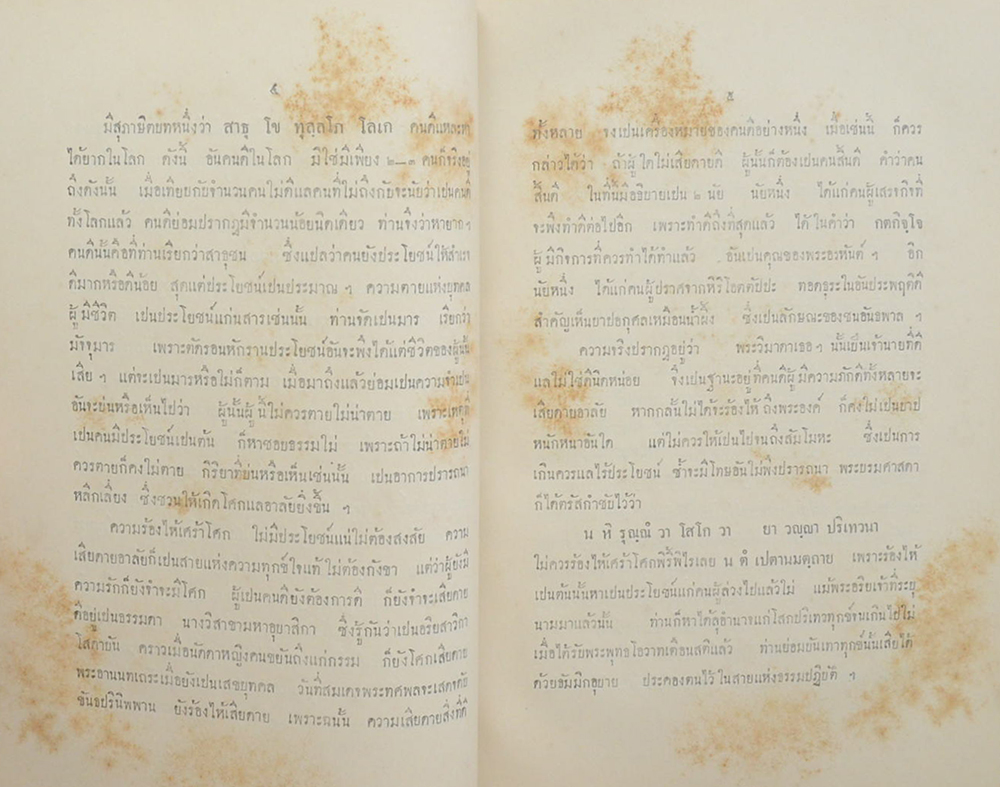 ๔
มีสุภาษิตบทหนึ่งว่า สาธุ โข ทุลฺลโภ โลเก คนดีแหละหา
ได้ยากในโลก ดังนี้ อันคนดีในโลก มิใช่มีเพียง ๒—๓ คนก็จริงอยู่
ถึงดังนั้น เมื่อเทียบกับจำนวนคนไม่ดีแลคนที่ไม่ถึงกับจะนับว่าเป็นคนดี
ทั้งโลกแล้ว คนดีย่อมปรากฏมีจำนวนน้อยนิดเดียว ท่านจึงว่าหายาก ฯ
คนดีนั้นคือที่ท่านเรียกว่าสาธุชน ซึ่งแปลว่าคนยังประโยชน์ให้สำเร็จ
ดีมากหรือดีน้อย สุดแต่ประโยชน์เป็นประมาณ ฯ ความตายแห่งบุคคล
ผู้มีชีวิต เป็นประโยชน์แก่นสารเช่นนั้น ท่านจัดเป็นมาร เรียกว่า
มัจจุมาร เพราะตัดรอนหักรานประโยชน์อันจะพึงได้แต่ชีวิตของผู้นั้น
เสีย ฯ แต่จะเป็นมารหรือไม่ก็ตาม เมื่อมาถึงแล้วย่อมเป็นความจำเป็น
อันจะบ่นหรือเห็นไปว่า ผู้นั้นผู้นี้ไม่ควรตายไม่น่าตาย เพราะเหตุที่
เป็นคนมีประโยชน์เป็นต้น ก็หาชอบธรรมไม่ เพราะถ้าไม่น่าตายไม่
ควรตายก็คงไม่ตาย กิริยาที่บ่นหรือเห็นเช่นนั้น เป็นอาการปรารถนา
หลีกเลี่ยง ซึ่งชวนให้เกิดโศกแลอาลัยยิ่งขึ้น ฯ
ความร้องไห้เศร้าโศก ไม่มีประโยชน์แน่ไม่ต้องสงสัย ความ
เสียดายอาลัยก็เป็นสายแห่งความทุกข์ใจแท้ ไม่ต้องกังขา แต่ว่าผู้ยังมี
ความรักก็ยังจำจะมีโศก ผู้เป็นคนดียังต้องการดี ก็ยังจำจะเสียดาย
ดีอยู่เป็นธรรมดา นางวิสาขามหาอุบาสิกา ซึ่งรู้กันว่าเป็นอริยสาวิกา
โสดาบัน คราวเมื่อนัดดาหญิงคนขยันถึงแก่กรรม ก็ยังโศกเสียดาย
พระอานนทเถระเมื่อยังเป็นเสขบุคคล วันที่สมเด็จพระทศพลจะเสด็จดับ
ขันธปรินิพพาน ยังร้องไห้เสียดาย เพราะฉนั้น ความเสียดายสิ่งที่ดี
๕
ทั้งหลาย จงเป็นเครื่องหมายของคนดีอย่างหนึ่ง เมื่อเช่นนี้ ก็ควร
กล่าวได้ว่า ถ้าผู้ใดไม่เสียดายดี ผู้นั้นก็ต้องเป็นคนสิ้นดี คำว่าคน
สิ้นดี ในที่นี้มีอธิบายเป็น ๒ นัย นัยหนึ่ง ได้แก่คนผู้เสร็จกิจที่
จะพึงทำดีต่อไปอีก เพราะทำดีถึงที่สุดแล้ว ได้ในคำว่า กตกิจฺโจ
ผู้มีกิจการที่ควรทำได้ทำแล้ว อันเป็นคุณของพระอรหันต์ ฯ อีก
นัยหนึ่ง ได้แก่คนผู้ปราศจากหีริโอตตัปปะ ทอดธุระในอันประพฤติดี
สำคัญเห็นบาปอกุศลเหมือนน้ำผึ้ง ซึ่งเป็นลักษณะของชนอันธพาล ฯ
ความจริงปรากฏอยู่ว่า พระวิมาดาเธอ ฯ นั้นเป็นเจ้านายที่ดี
แลไม่ใช่ดีนิดหน่อย จึงเป็นฐานะอยู่ที่คนดีผู้มีความภักดีทั้งหลายจะ
เสียดายอาลัย หากกลั้นไม่ได้จะร้องไห้ถึงพระองค์ ก็คงไม่เป็นบาป
หนักหนาอันใด แต่ไม่ควรให้เป็นไปจนถึงสัมโมหะ ซึ่งเป็นการ
เกินควรแลไร้ประโยชน์ ซ้ำจะมีโทษอันไม่พึงปรารถนา พระบรมศาสดา
ก็ได้ตรัสกำชับไว้ว่า
น หิ รุณฺณํ วา โสโก วา ยา วญฺญา ปริเทวนา
ไม่ควรร้องไห้เศร้าโศกพิรี้พิไรเลย น ตํ เปตานมตฺถาย เพราะร้องไห้
เป็นต้นนั้นหาเป็นประโยชน์แก่คนผู้ล่วงไปแล้วไม่ แม้พระอริยเจ้าที่ระบุ
นามมาแล้วนั้น ท่านก็หาได้ลุอำนาจแก่โสกปริเทวทุกข์จนเกินไปไม่
เมื่อได้รับพระพุทธโอวาทเตือนสติแล้ว ท่านย่อมบันเทาทุกข์นั้นเสียได้
ด้วยธัมมิกอุบาย ประคองตนไว้ในสายแห่งธรรมปฏิบัติ ฯ